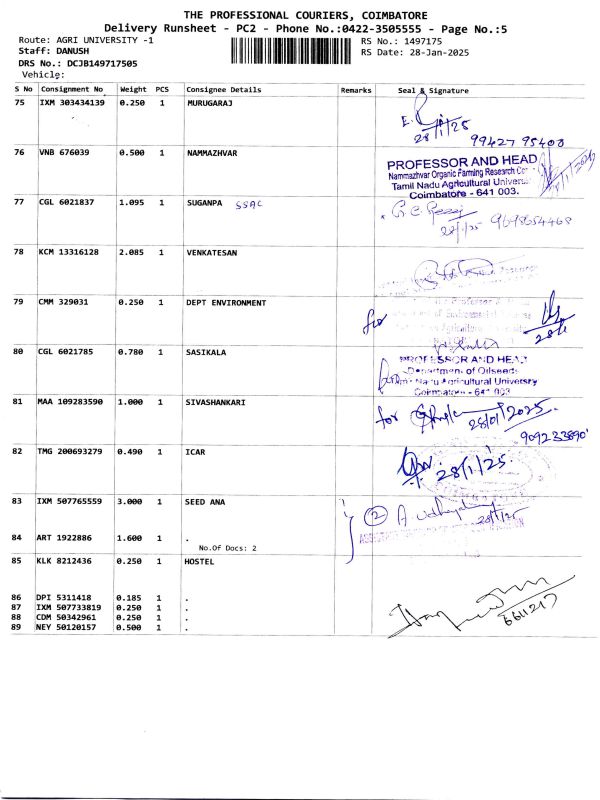 THE PROFESSIONAL COURIERS, COIMBATORE
Delivery Runsheet - PC2 - Phone No.:0422-3505555 - Page No.:5
Route: AGRI UNIVERSITY -1 RS No.: 1497175
Staff: DANUSH RS Date: 28-Jan-2025
DRS No.: DCJB149717505
Vehicle:
S No Consignment No Weight PCS Consignee Details Remarks Seal & Signature
75 IXM 303434139 0.250 1 MURUGARAJ
28/1/25
99427 95400
76 VNB 676039 0.500 1 NAMMAZHVAR
PROFESSOR AND HEAD
Nammazhvar Organic Farming Research
Tamil Nadu Agricultural
Coimbatore - 641 003.
77 CGL 6021837 1.095 1 SUGANPA SSAC
28/1/25 9698654468
78 KCM 13316128 2.085 1 VENKATESAN
79 CMM 329031 0.250 1 DEPT ENVIRONMENT
for
80 CGL 6021785 0.780 1 SASIKALA
PROFESSOR AND HEAD
Department of Oilseeds
Nadu Agricultural University
Coimbatore - 641 003
81 MAA 109283590 1.000 1 SIVASHANKARI
for 28/01/2025.
82 TMG 200693279 0.490 1 ICAR
28/1/25.
83 IXM 507765559 3.000 1 SEED ANA
2
28/1/25
84 ART 1922886 1.600 1 .
No.Of Docs: 2
85 KLK 8212436 0.250 1 HOSTEL
86 DPI 5311418 0.185 1 .
87 IXM 507733819 0.250 1 .
88 CDM 50342961 0.250 1 .
89 NEY 50120157 0.500 1 .
6611217